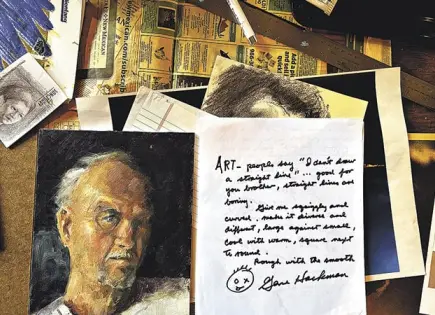 ART— people say "I can't draw
a straight line"... good for
you brother, straight lines are
boring.
Give me squiggly and
curved. make it diverse and
different, large against small,
cool with warm, square next
to round.
Rough with the smooth
Gene Hackman